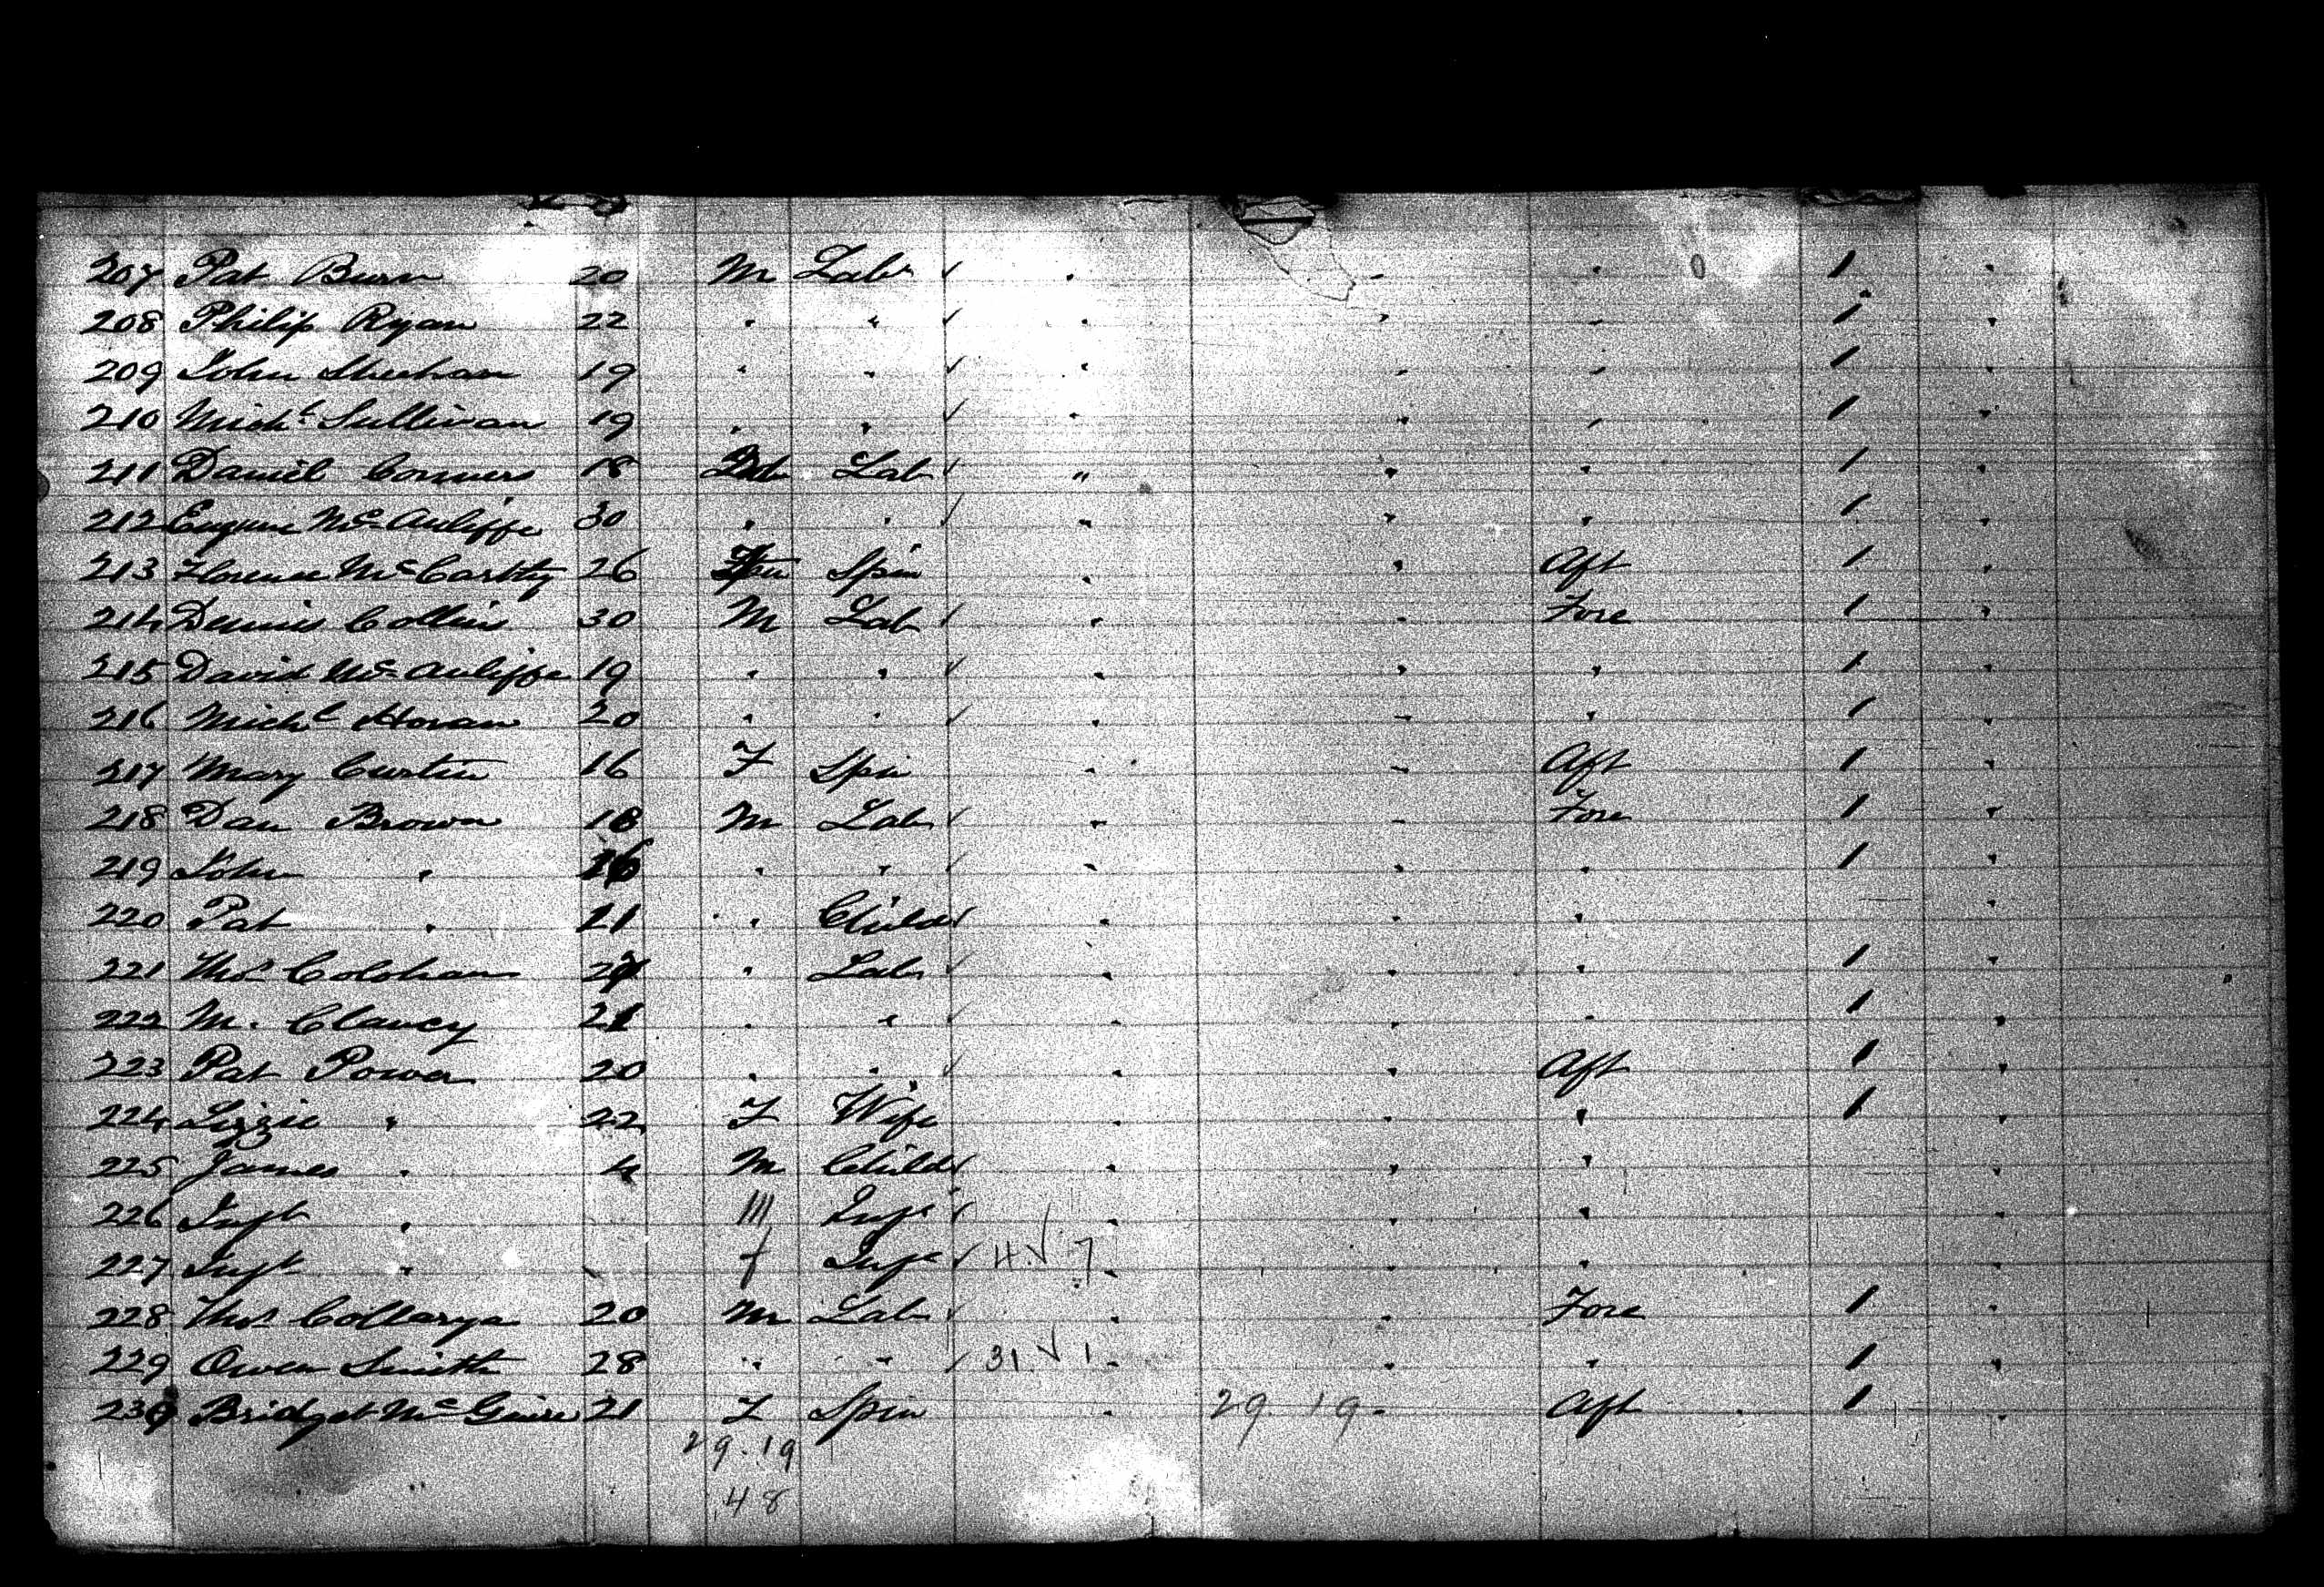 207 Pat Burn 20 M Lab " - " 1 "
208 Philip Ryan 22 " " " " " 1 "
209 John Sheehan 19 " " " " " 1 "
210 Michl Sullivan 19 " " " " " 1 "
211 Daniel Connors 18 Lab " " " 1 "
212 Eugene McAuliffe 30 " " " " " 1 "
213 Florence McCarthy 26 Spin " " Aft 1 "
214 Dennis Collins 30 M Lab " " Fore 1 "
215 David McAuliffe 19 " " " " " 1 "
216 Michl Horan 20 " " " - " 1 "
217 Mary Curtin 16 F Spin " - Aft 1 "
218 Dan Brown 18 M Lab " - Fore 1 "
219 John " 16 " " " " " 1 "
220 Pat " " Child " " " "
221 Thos Colohan " Lab " " " 1 "
222 M. Clancy 21 " " " " " 1 "
223 Pat Power 20 " " " " Aft 1 "
224 Lizzie " 22 F Wife " " " 1 "
225 James " 4 M Child " " " "
226 Inft " Inft " " " "
227 Inft " f Inft 4 7 " " " "
228 Thos 20 M Lab " " Fore 1 "
229 Owen Smith 28 " " 31 1 " " " 1 "
230 Bridget McGuire 21 F Spin " 29 19 - Aft 1 "
29.19
48